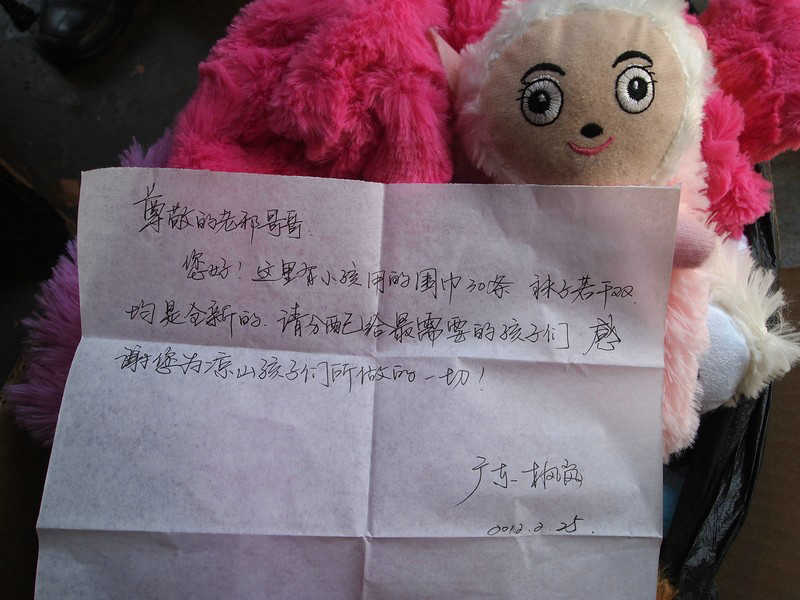 尊敬的老邪哥哥:
您好!这里有小孩用的围巾30条 袜子若干双.
均是全新的.请分配给最需要的孩子们 感
谢您为凉山孩子们所做的一切!
广东
2012.2.25.